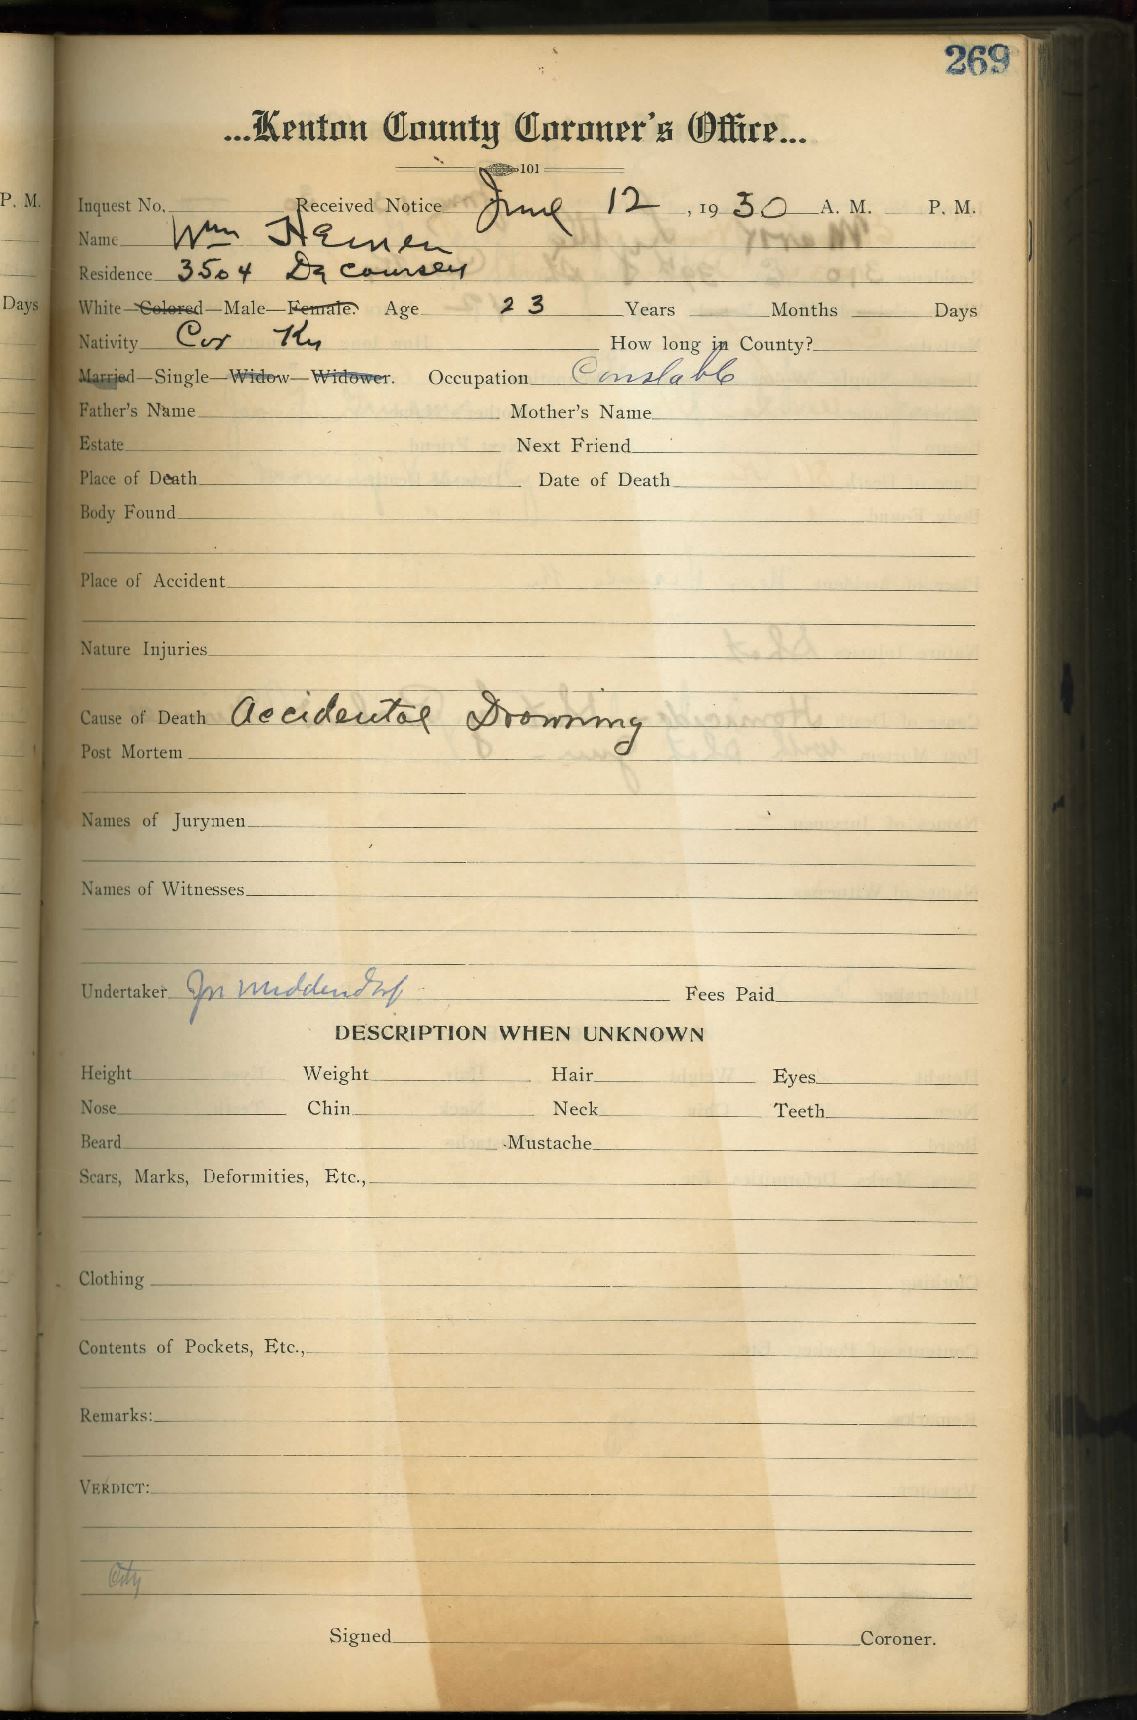 269
...Kenton County Coroner's Office...
101
P. M.
Inquest No. Received Notice June 12, 1930 A. M. P. M.
Name Wm
Residence 3504 DeCoursey
Days
White—Colored—Male—Female. Age 23 Years Months Days
Nativity Cov Ky How long in County?
Married—Single—Widow—Widower. Occupation Constable
Father's Name Mother's Name
Estate Next Friend
Place of Death Date of Death
Body Found
Place of Accident
Nature Injuries
Cause of Death Accidental Drowning
Post Mortem
Names of Jurymen
Names of Witnesses
Undertaker Jn Middendorf Fees Paid
DESCRIPTION WHEN UNKNOWN
Height Weight Hair Eyes
Nose Chin Neck Teeth
Beard Mustache
Scars, Marks, Deformities, Etc.,
Clothing
Contents of Pockets, Etc.,
Remarks:
VERDICT:
City
Signed Coroner.